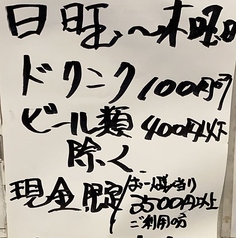 日旺〜木曜日
ドリンク100円
ビール類400円以下
除く
現金限
お一人様当り
2500円以上
ご利用の方